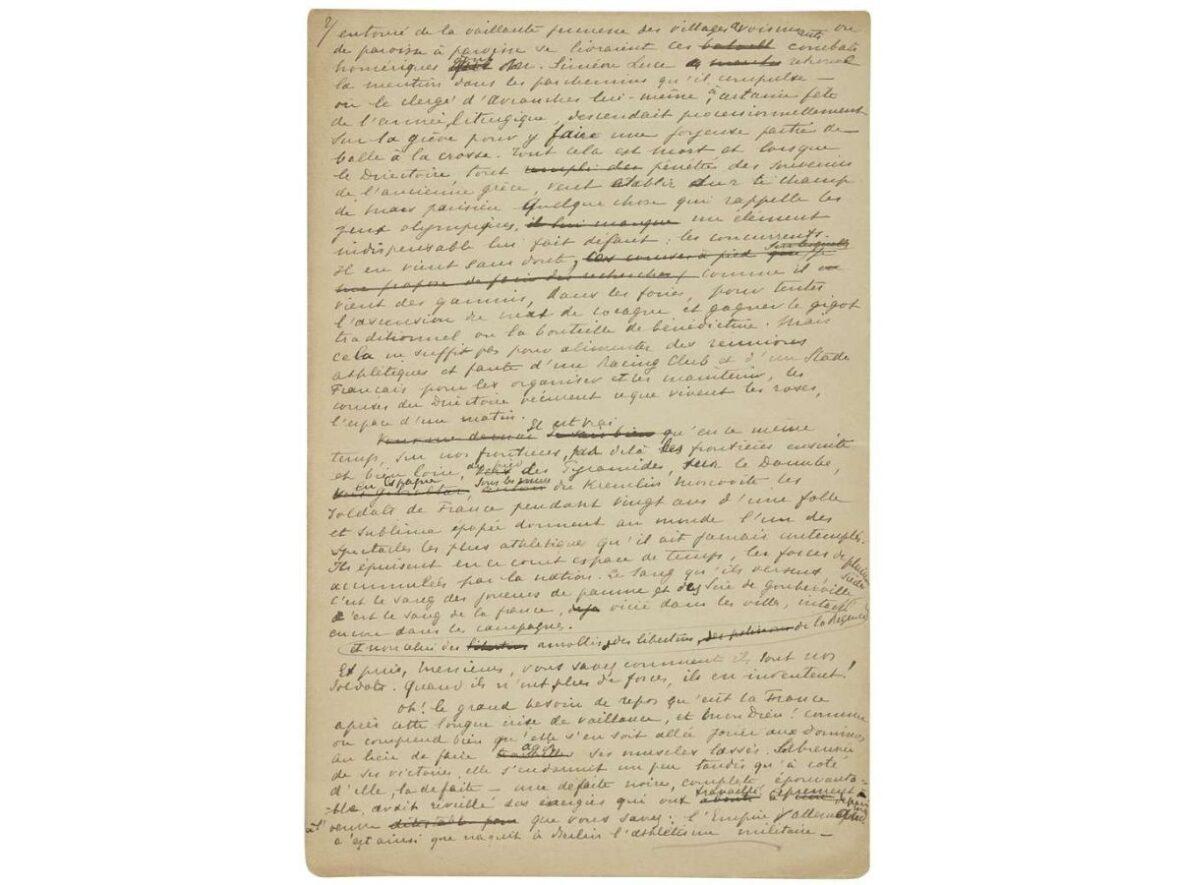 2/ entouré de la vaillante jeunesse des villages avoisinants ou
de paroisse à paroisse se livraient ces combats
homériques dont Mr. Siméon Luce retrouve
la mention dans les parchemins qu'il compulse —
où le clergé d'Avranches lui-même, à certaine fête
de l'année liturgique, descendait processionnellement
sur la grève pour y faire une joyeuse partie de
balle à la crosse. Tout cela est mort et lorsque
le Directoire tout rempli des pénétré des souvenirs
de l'ancienne grèce, veut établir sur le champ
de mars parisien quelque chose qui rappelle les
jeux olympiques, il lui manque un élément
indispensable lui fait défaut : les concurrents.
Il en vient sans doute, les courses à pied sur lesquelles
me propose de faire des recherches, comme il
vient des gamins, dans les foires, pour tenter
l'ascension du mat de cocagne et gagner le gigot
traditionnel ou la bouteille de bénédictine. Mais
cela ne suffit pas pour alimenter des réunions
athlétiques et faute d'un Racing Club et d'un Stade
Français pour les organiser et les maintenir, les
courses du Directoire vécurent ce que vivent les roses,
l'espace d'un matin.
Il est vrai je sais bien qu'en ce même
temps, sur nos frontières, par delà les frontières ensuite
et bien loin, au pied des Pyramides, sur le Danube,
en Espagne, sous les murs du Kremlin moscovite les
soldats de France pendant vingt ans d'une folle
et sublime épopée donnent au monde l'un des
spectacles les plus athlétiques qu'il ait jamais contemplés.
Ils épuisent en ce court espace de temps, les forces de plusieurs siècles
accumulées par la nation. Le sang qu'ils versent
c'est le sang des joueurs de paume et des Sire de Gouberville
c'est le sang de la france, déja vicié dans les villes, intact
encore dans les campagnes.
et non celui des amollis, des libertins, de la Régence
Et puis, Messieurs, vous savez comment ils sont nos
soldats. Quand ils n'ont plus de forces, ils en inventent !
Oh! le grand besoin de repos qu'eut la France
après cette longue crise de vaillance, et mon Dieu ! comme
on comprend bien qu'elle s'en soit allée jouer aux dominos
au lieu de faire agir ses muscles lassés. Enivrée
de ses victoires, elle s'endormit un peu tandis qu'à côté
d'elle, la défaite — une défaite noire, complète, épouvanta-
ble, avait réveillé des énergies qui ont travaillé âprement
à l'oeuvre que vous savez : l'Empire d'allemagne
c'est ainsi que naquit à Berlin l'athlétisme militaire —